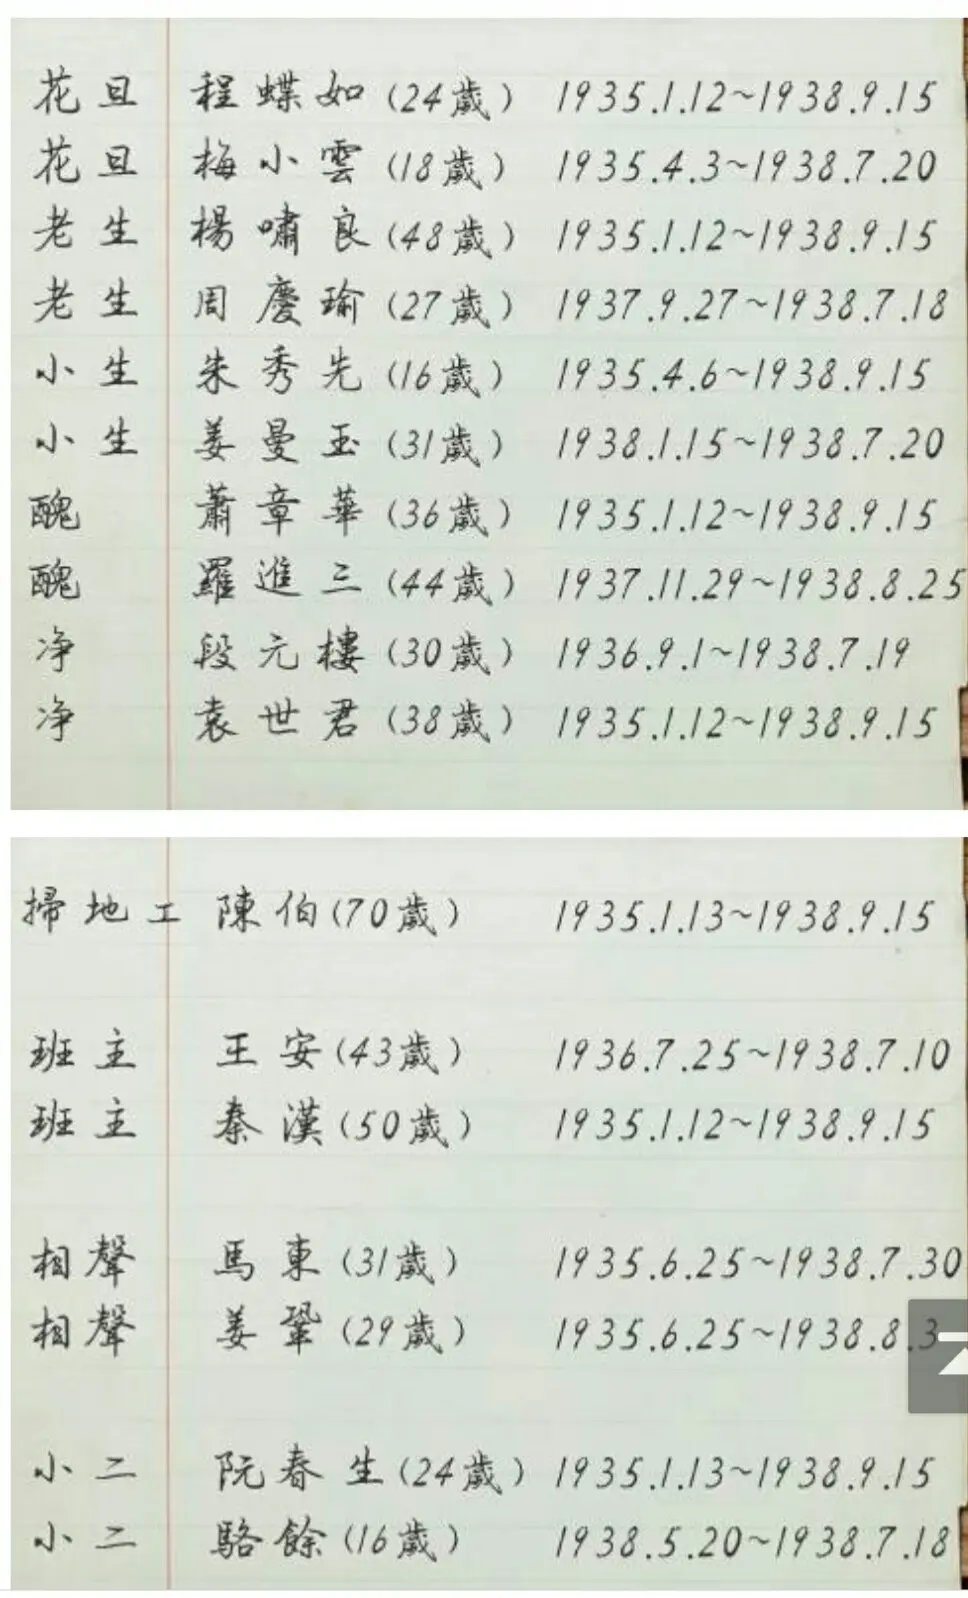 花旦 程蝶如(24歲) 1935.1.12~1938.9.15
花旦 梅小雲(18歲) 1935.4.3~1938.7.20
老生 楊嘯良(48歲) 1935.1.12~1938.9.15
老生 周慶瑜(27歲) 1937.9.27~1938.7.18
小生 朱秀先(16歲) 1935.4.6~1938.9.15
小生 姜曼玉(31歲) 1938.1.15~1938.7.20
醜 蕭章華(36歲) 1935.1.12~1938.9.15
醜 羅進三(44歲) 1937.11.29~1938.8.25
净 段元樓(30歲) 1936.9.1~1938.7.19
净 袁世君(38歲) 1935.1.12~1938.9.15
掃地工 陳伯(70歲) 1935.1.13~1938.9.15
班主 王安(43歲) 1936.7.25~1938.7.10
班主 秦漢(50歲) 1935.1.12~1938.9.15
相聲 馬東(31歲) 1935.6.25~1938.7.30
相聲 姜鞏(29歲) 1935.6.25~1938.8.3
小二 阮春生(24歲) 1935.1.13~1938.9.15
小二 駱餘(16歲) 1938.5.20~1938.7.18